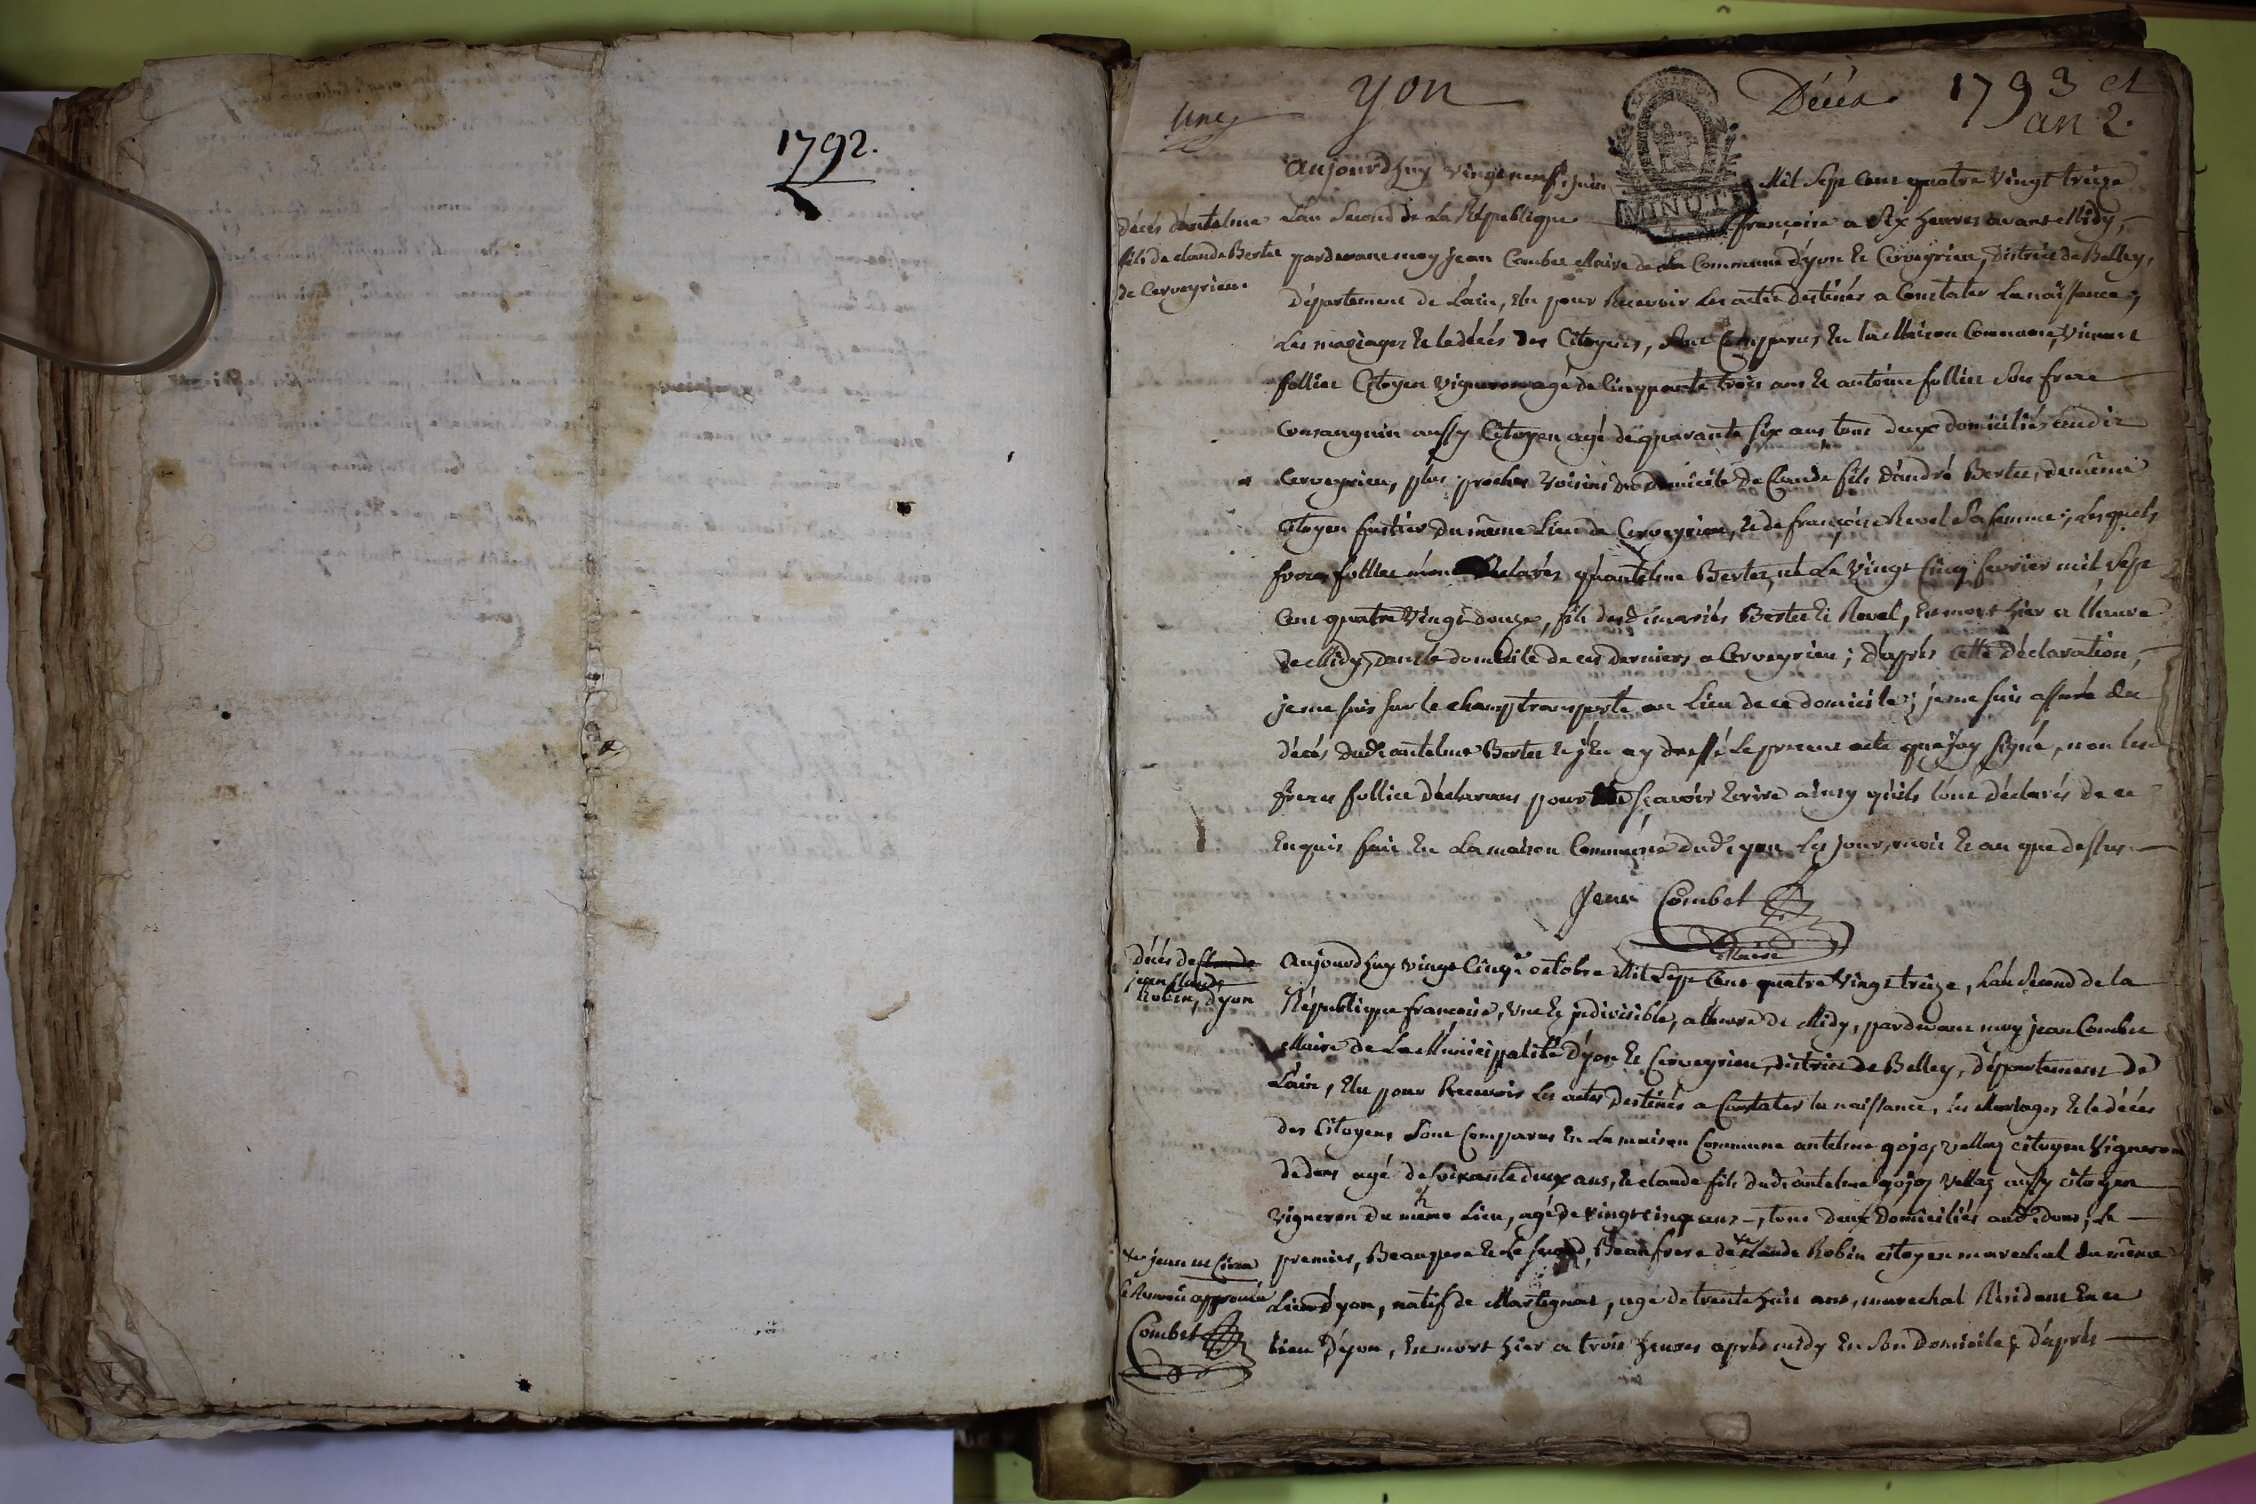 1792.
une
yon
Décés
1793 et
an 2.
MINUT
Aujourd'huy vingt neuf juin Mil Sept Cent quatre Vingt treize
Décés d'antelme
fils de claude Bertet
de Cerveyrieu
L'an Second de La République françoise a Six heures avant Midy,
pardevant moy Jean Combet Maire de La Commune d'yon et Cerveyrieu, District de Belley,
Département de L'ain, élu pour Recevoir Les actes destinés a Constater La naissance,
Les mariages et le décés des Citoyens, Sont Comparus en la Maison Commune, Vincent
follier Citoyen Vigneron agé de Cinquante trois ans et antoine follier Son frere
Consanguin aussy Citoyen agé de quarante six ans tous deux domiciliés audit
Cerveyrieu, plus proches voisins du domicile de Claude fils d'andré Bertet, de même
Citoyen fustier du même Lieu de Cerveyrieu, et de françoise Revel Sa femme; Lesquels
freres follier m'ont déclarés qu'antelme Bertet, né Le Vingt Cinq fevrier mil Sept
Cent quatre Vingt douze, fils desdt mariés Bertet et Revel, est mort hier a L'heure
de Midy, dans le domicile de ces derniers a Cerveyrieu; d'après Cette Déclaration,
je me suis sur le champ transporté au Lieu de ce domicile; je me suis assuré du
décés dudt antelme Bertet et j'en ay dressé Le present acte que j'ay signé, non les
freres follier déclarans pour ne sçavoir Ecrire ainsy qu'ils l'ont déclarés de ce
Enquis fait en La maison Commune dudt yon Les jour, mois et an que dessus
Jean Combet
Maire
Décés de Claude
jean Claude
Robin, d'yon
Aujourd'huy vingt Cinq octobre Mil Sept Cent quatre Vingt treize, L'an Second de la
République françoise, Une et jndivisible, a L'heure de Midy, pardevant moy jean Combet
Maire de La Municipalité d'yon et Cerveyrieu, District de Belley, Département de
L'ain, Elu pour Recevoir Les actes Destinés a Constater la naissance, Les Mariages et le décés
des Citoyens Sont Comparus en La maison Commune antelme gojoz Vellaz citoyen Vigneron
de dons agé de soixante deux ans, et claude fils dudt antelme gojoz Vellaz aussy citoyen
Vigneron du même Lieu, agé de vingt cinq ans, tous deux Domiciliés audt dons; Le
premier, Beaupere et Le second, Beaufrere de Claude Robin citoyen marechal du même
Lieu d'yon, natif de Martignat, agé de trente huit ans, marechal Résidant En ce
Lieu d'yon, est mort hier a trois heures après midy en Son Domicile; d'après
jean
Le Renvoi approuvé
Combet